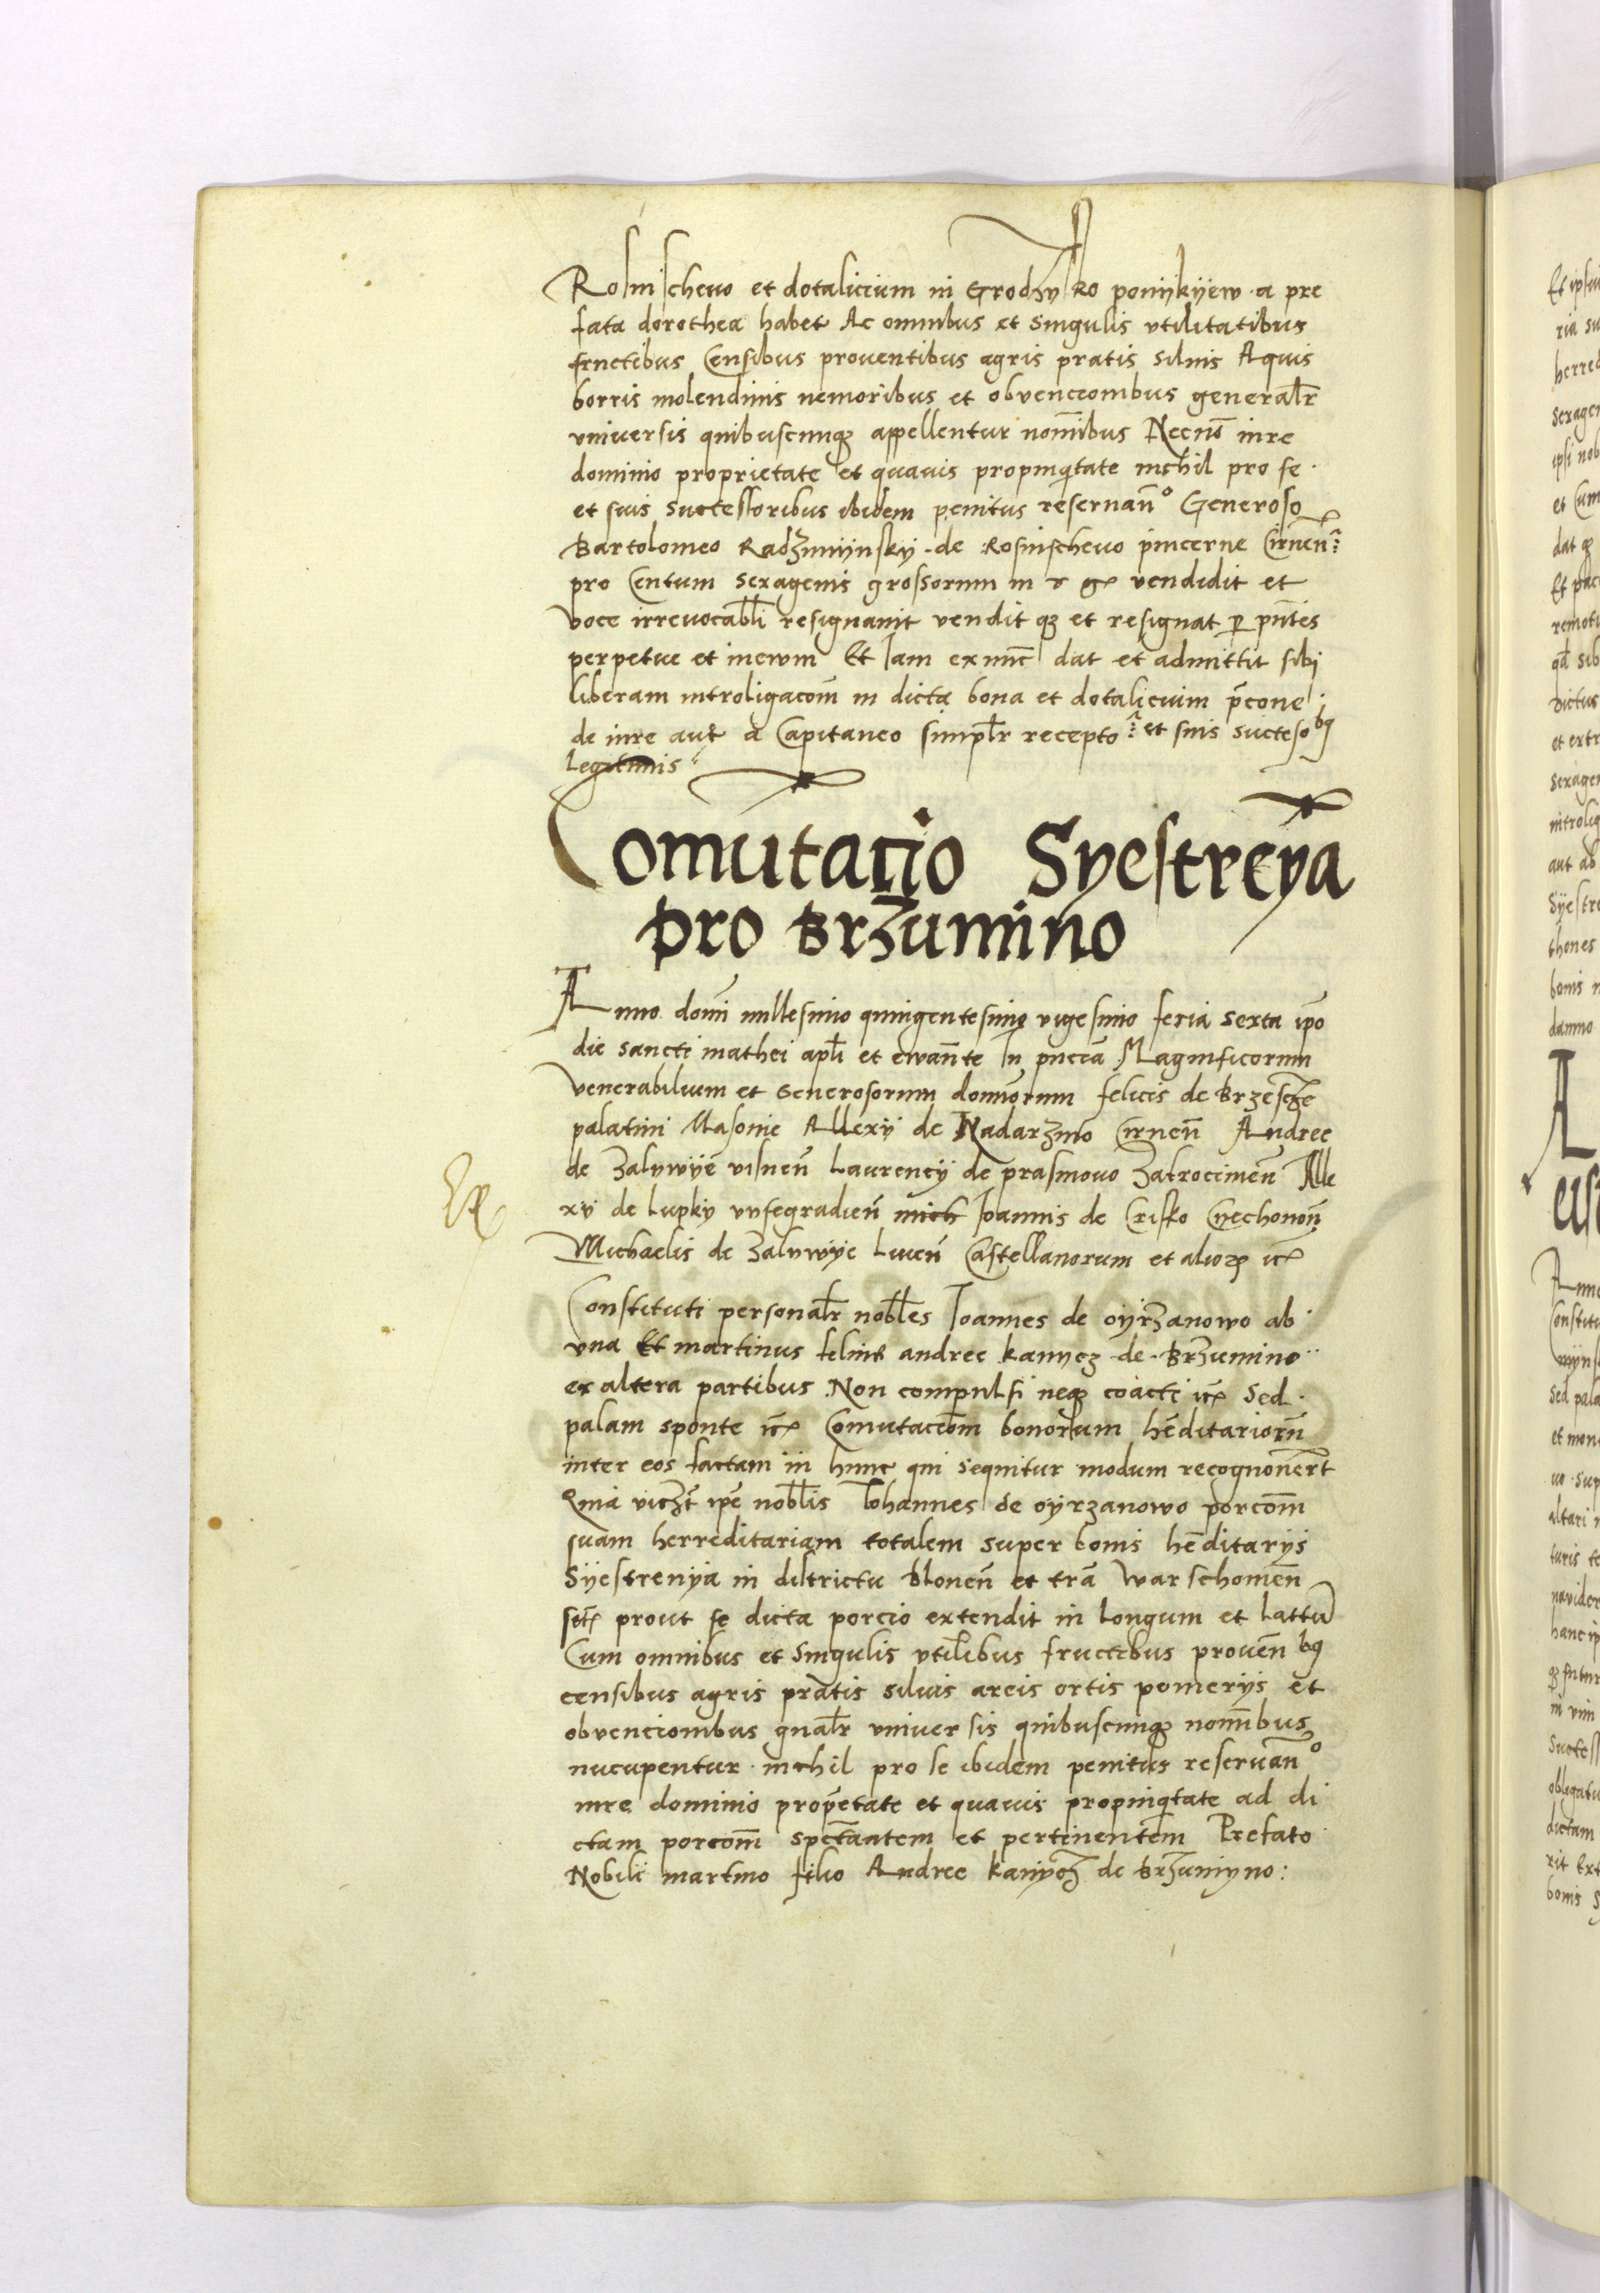 Rosnischewo et dotalicium in Grodzysko pomykyew a pre
fata dorothea habet Ac omnibus et Singulis vtilitatibus
fructibus Censibus prouentibus agris pratis siluis Aquis
borris molendinis nemoribus et obvencionibus generalr̄
vniuersis quibuscunqꝫ appellentur nom̄ibus Necno͞ iure
dominio proprietate et quauis propinqᷓtate nichil pro se
et suis successoribus ibidem penitus reseruan̄º Generoso
Bartolomeo Radzmijnskÿ de Rosnischewo pincerne Cirnen̄
pro Centum sexagenis grossorum in r gꝫ vendidit et
voce irreuocabl̄i resignauit vendit qꝫ et resignat ꝑ pn̄tes
perpetue et in ewm Et Iam ex nun̄c dat et admittit sibi
liberam introligacom̄ in dicta bona et dotalicium p̄cone
de iure aut̄ a Capitaneo simplr̄ recepto et suis successobꝫ
Legitimis
Comutacio Syestrenya
pro Brzumino
Anno domī millesimo quingentesimo vigesimo feria sexta ip̄o
die sancti mathei apl̄i et ewan̄te In pn̄cia Magnificorum
venerabilium et Generosorum domīorum felicis de Brzescze
palatini Masouie Allexÿ de Nadarzino Cirnen̄ Andree
de Zalvwÿe visnen̄ Laurencÿ de prasmowo Zakrocimen̄ Alle
xÿ de Lupky vysegradien̄ mich Ioannis de Crisko Czechonon̄
Michaelis de Zalvwÿe Liuen̄ Castellanorum et alioꝝ ic̄
Constituti personalr̄ nobl̄es Ioannes de oÿrzanowo ab
vna Et martinus felius andree kanycz de Brzumino
ex altera partibus Non compulsi neqꝫ coacti ic̄ Sed
palam sponte ic̄ Comutaciom̄ bonorum he͞ditariorum̄
inter eos factam in hunc qui sequitur modum recognouer̄t
Quia vidzt̄ ip̄e nobl̄is Iohannes de oÿrzanowo porcom̄
suam herreditariam totalem super bonis he͞ditarijs
Sÿestrenÿa in districtu Blonen̄ et tr̄a warschouien̄
sit̄ prout se dicta porcio extendit in Longum et Lattū
Cum omnibus et Singulis vtil̄ibus fructibus prouen̄ bꝫ
censibus agris pratis siluis areis ortis pomerijs et
obvencionibus gn̄alr̄ vniuersis quibuscunqꝫ nom̄ibus
nucupentur nichil pro se ibidem penitus reseruan̄º
iure dominio prop̄etate et quauis propinqᷓtate ad di
ctam porcom̄ spectantem et pertinentem Prefato
Nobili martino filio Andree kanycz de Brzumyno: